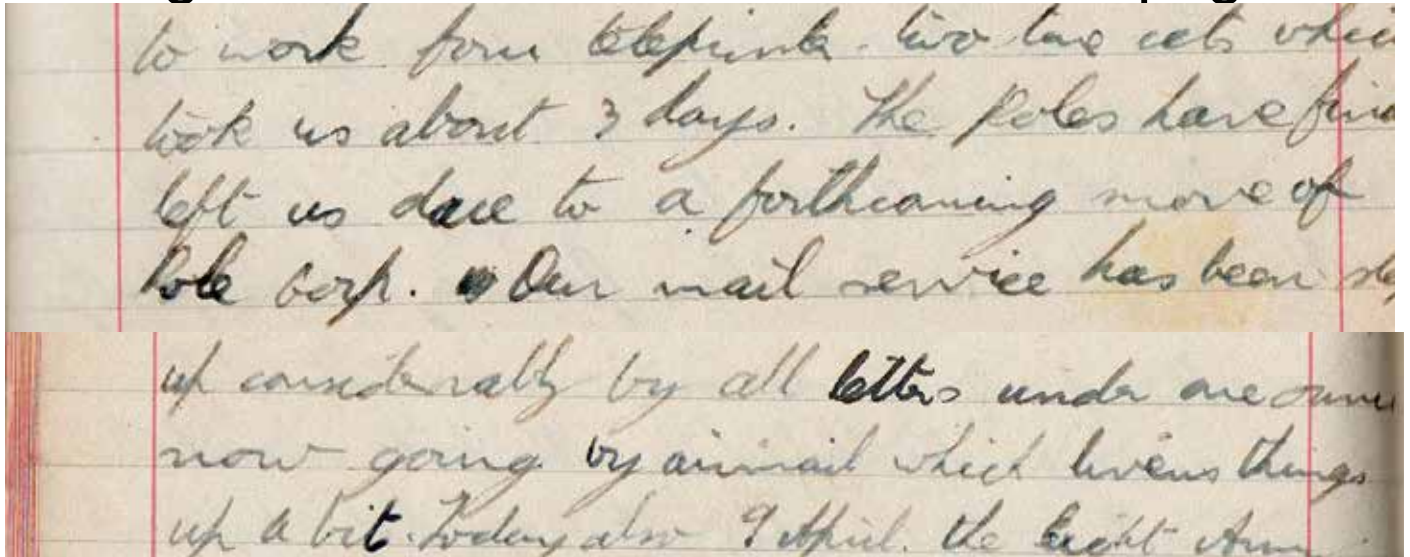 to work four teleprinter two tone sets which
took us about 3 days. The Poles have
left us due to a forthcoming move of
Pole Corp. Our mail service has been
up considerably by all letters under one ounce
now going by airmail which livens things
up a bit. Today also 9 April. the Eight Army